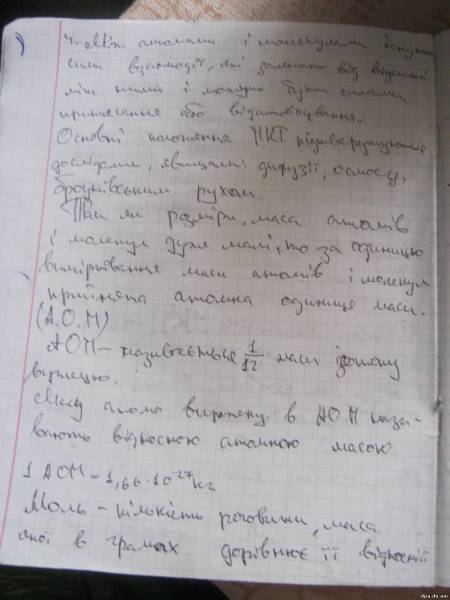 4. Між атомами і молекулами існують
сили взаємодії, які залежать від відстані
між ними і можуть бути силами
притягання або відштовхування.
Основні положення МКТ підтверджуються
дослідами, явищами: дифузії, осмосу,
броунівським рухом.
Так як розміри, маса атомів
і молекул дуже малі, то за одиницю
вимірювання маси атомів і молекул
прийнята атомна одиниця маси.
(А.О.М)
АОМ – називається 1/12 маси ізотопу
вуглецю.
Масу атома виражену в АОМ нази-
вають відносною атомною масою
1 АОМ – 1,66·10⁻²⁷кг
Моль – кількість речовини, маса
якої в грамах дорівнює її відносній
dpa.do.am